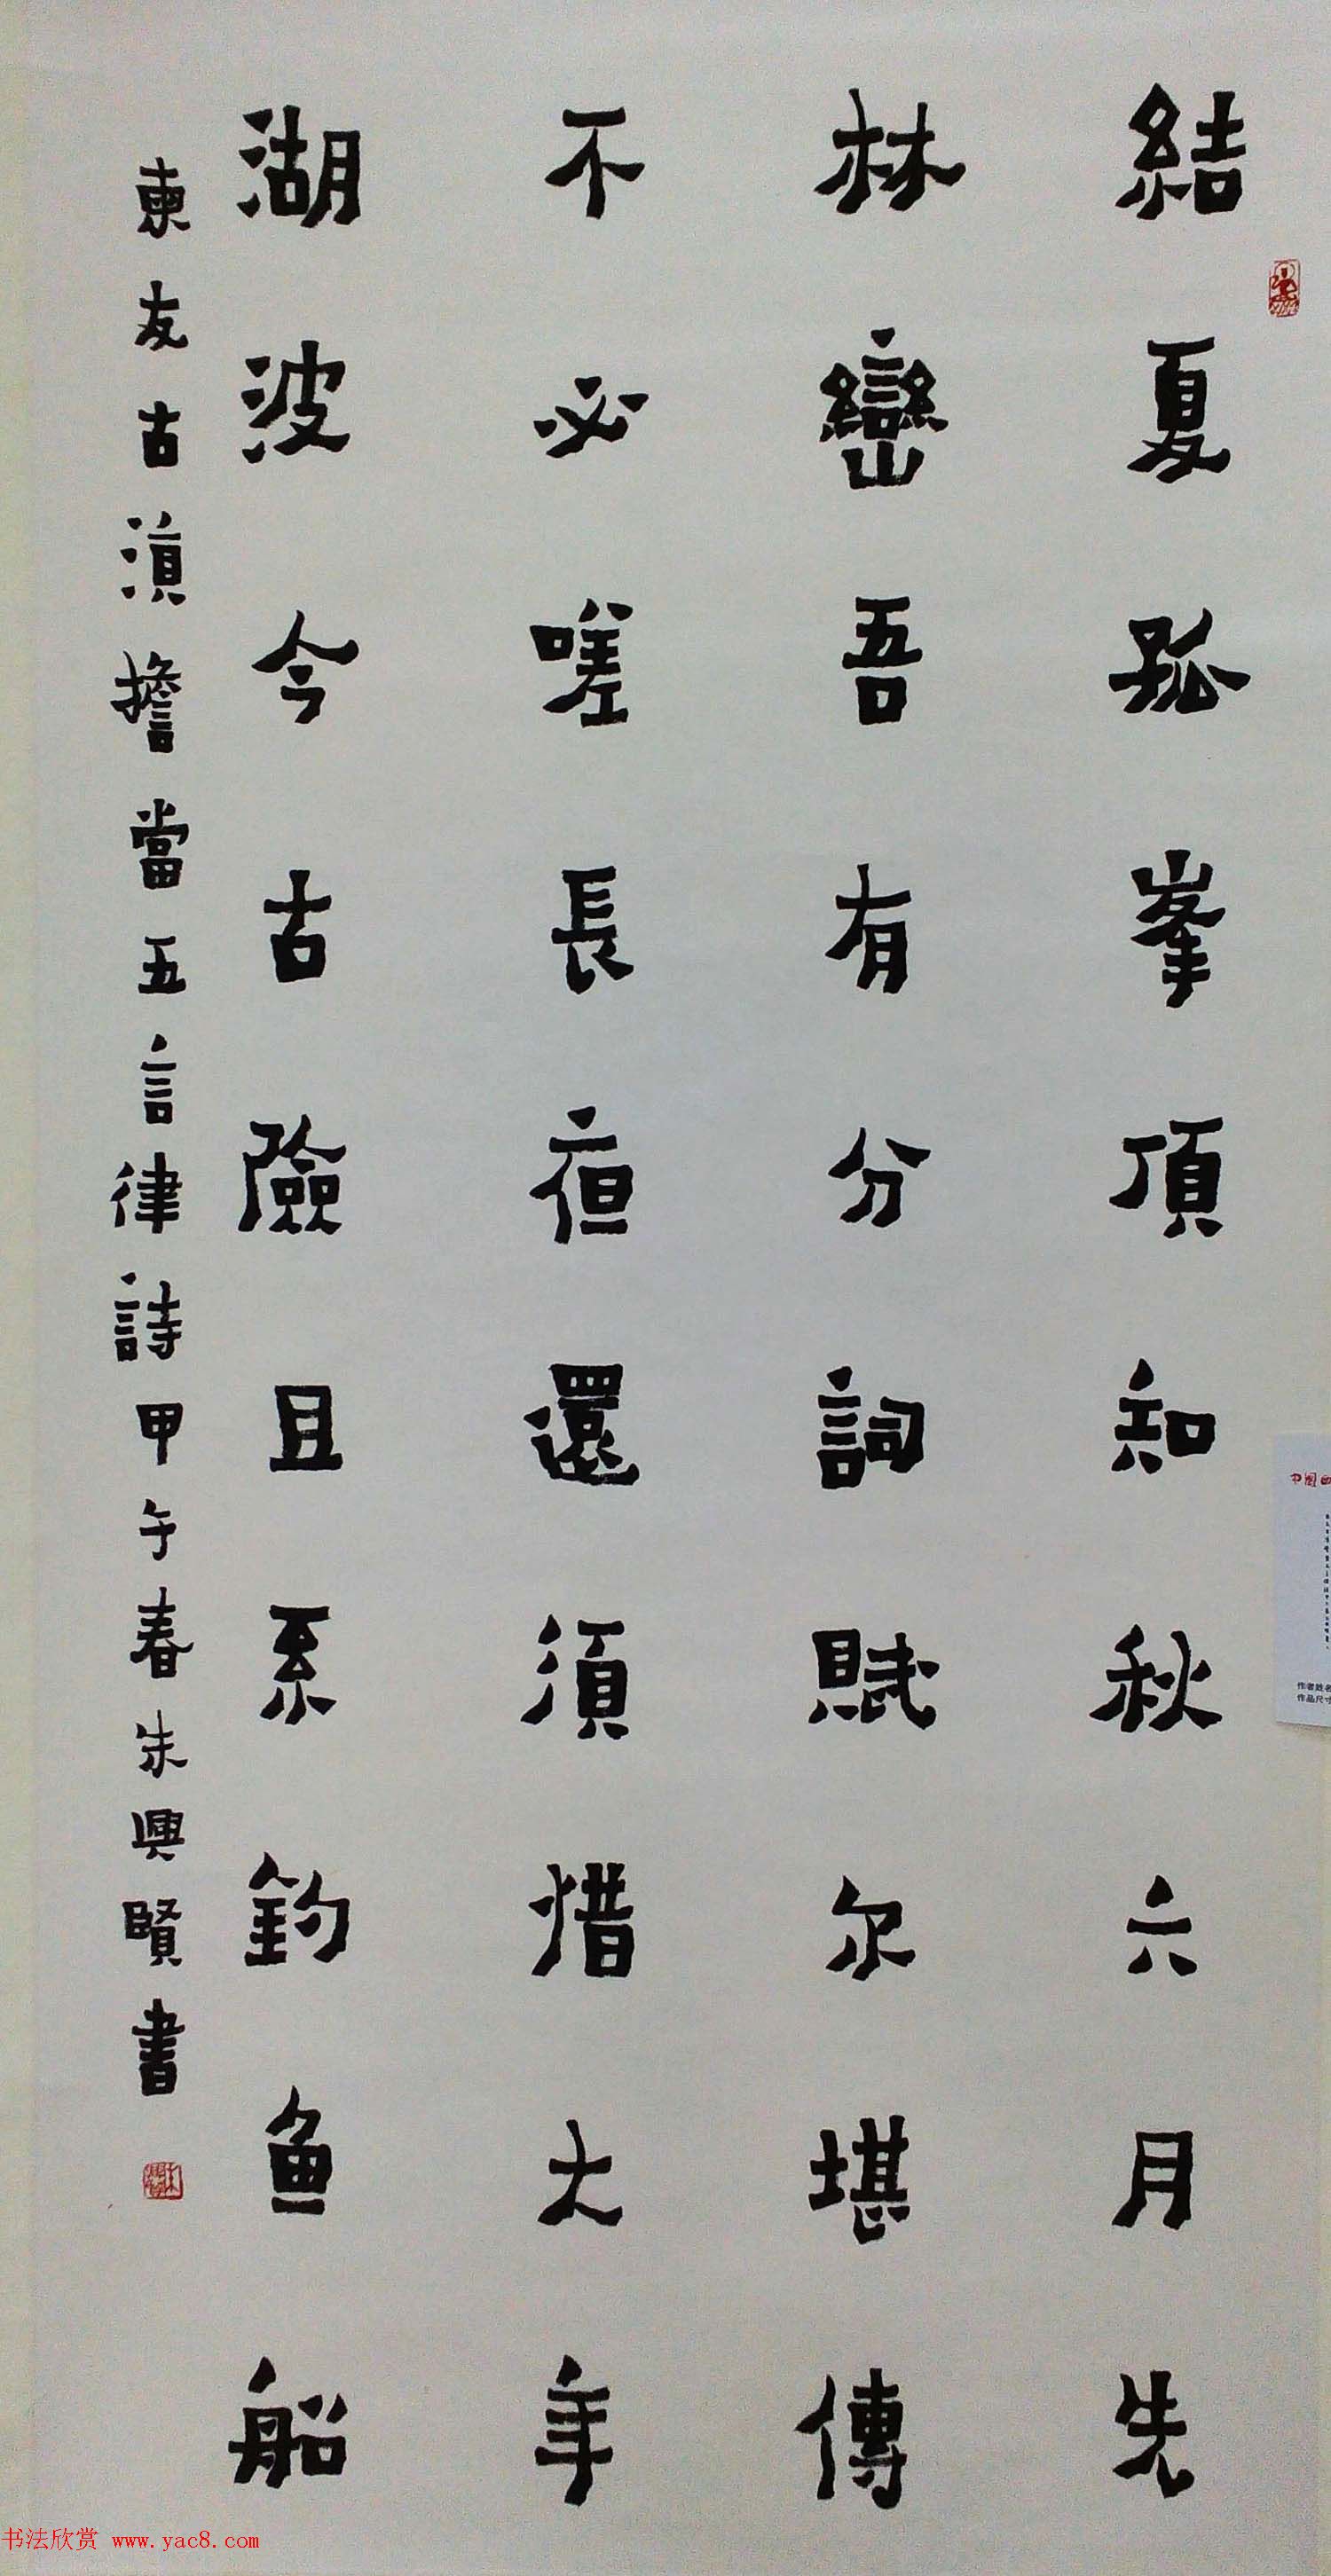 結夏孤峯頂知秋六月先
林巒吾有分詞賦尔堪傳
不必嗟長亱還須惜大年
湖波今古險且系釣鱼船
柬友古滇擔當五言律詩甲午春朱興賢書
中國
作者姓
作品尺
书法欣赏 www.yac8.com